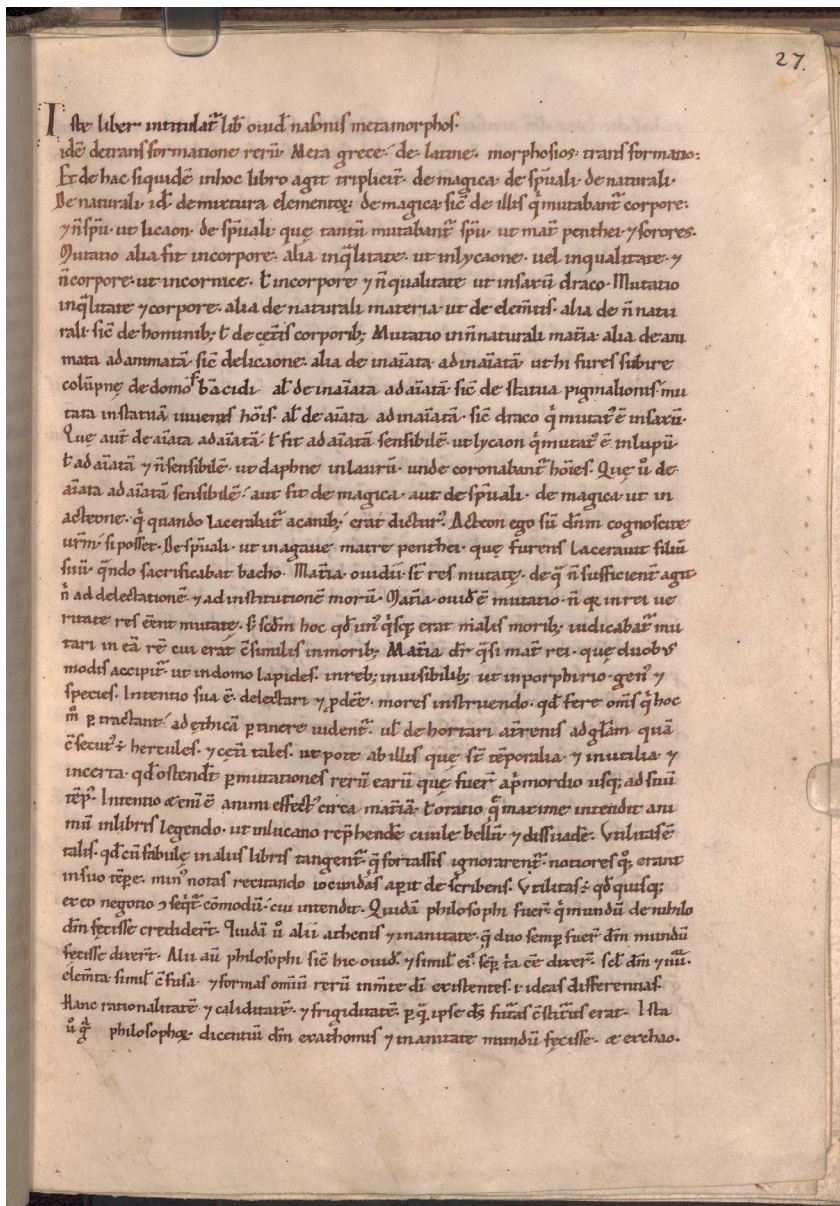 27.
Iste liber intitulat᷑ lib̄ ouid̄ nasonis metamorphos·
idē detransformatione rerū. Meta grece· de latine· morphosios· transformatio:
Et de hac siquidē inhoc libro agit triplicit̄· de magica· de sp̄uali· de naturali·
De naturali· id̄· demixtura elementoꝝ· de magica sic̄ de illis q̄ mutabant᷑ corpore·
⁊ n̄ sp̄u· ut licaon· de sp̄uali· quę tantū mutabant᷑ sp̄u· ut mat̄ penthei ⁊ sorores·
Mutatio alia fit incorpore· alia inq̄litate· ut inlycaone· uel inqualitate· ⁊
n̄ corpore· ut incornice· ł incorpore ⁊ n̄ qualitate ut insaxū draco· Mutatio
inq̄litate ⁊ corpore· alia de naturali materia· ut de elem̄tis· alia de n̄ natu
rali· sic̄ de hominib; ł de cęt̄is corporib; Mutatio in n̄ naturali mat̄ia· alia de ani
mata ad animatā· sic̄ delicaone· alia de inaīata adinaīatā ut hi fures subire
colūpnę de domo bacidi· al̄ de inaīata ad aīatā· sic̄ de statua pigmalionis· mu
tata instatuā uiuenis hōis· al̄ de aīata adinaīatā· sic̄ draco q̄ mutat᷒ ē insaxū·
Quę aut̄ de aīata ad aīatā· ł fit ad aīatā sensibilē· ut lycaon q̄ mutat᷒ ē inlupū·
ł ad aīatā ⁊ n̄ sensibilē· ut daphne inlaurū· unde coronabant᷑ hōies· Quę ů de
aīata ad aīatā sensibilē· aut fit de magica· aut de sp̄uali· de magica ut in
acteone· q̄ quando lacerabat᷑ a canib; erat dictur᷒· Acteon ego sū dn̄m cognoscite
ur̄m· si posset· De sp̄uali· ut inagaue matre penthei· quę furens lacerauit filiū
suū· q̄ndo sacrificabat bacho· Mat̄ia ouidii st̄ res mutatę· de q̄ n̄ sufficient̄ agit·
n̄ ad delectationē ⁊ ad institutionē morū· Mat̄ia ouid̄ ē mutatio· n̄ qr inrei ue
ritate res eēnt mutatę· s; scd̄m hoc qd̄ un᷒ q̄sq; erat malis morib; iudicabat᷑ mu
tari in eā rē cui erat c̄similis inmorib; Mat̄ia dr̄ q̄si mat̄ rei· quę duobus
modis accipit᷑· ut indomo lapides· inreb; inuisibilib; ut inporphirio· gen᷒ ⁊
species· Intentio sua ē· delectari ⁊ ꝓdēe· mores instruendo· qd̄ fere oms̄ q̄ hoc
m̊ ꝑtractant· ad ęthicā ꝑtinere uident᷑· ul̄ dehortari at̄renis adgl̄am quā
c̄secut᷒ ÷ hercules· ⁊ cęt̄i tales· ut pote ab illis quę st̄ tēporalia· ⁊ inutilia ⁊
incerta· qd̄ ostendit ꝑ mutationes rerū earū quę fuer̄ a p̄mordio usq; ad suū
tēp᷒· Intentio ēnī ē animi effect᷒ circa mat̄iā· ł oratio q̄ maxime intendit ani
mū inlibris legendo· ut inlucano rep̄hendē ciuile bellū ⁊ dissuadē· Vtilitas ē
talis· qd̄ cū fabulę inaliis libris tangent᷑· q̄ fortassis ignorarent᷑· notiores q̊; erant
insuo tēpe· min᷒ notas recitando iocundas aꝑit describens· Vtilitas ÷ qd̄ quisq;
ex eo negotio ꝯseqt̄ cōmodū· cui intendit· Quidā philosophi fuer̄ q̄ mundū de nihilo
dm̄ fęcisse crediderī· Quidā ů alii athenis ⁊ inanitate· q̄ duo semꝑ fuer̄ dm̄ mundū
fęcisse dixer̄t· Alii au̅ philosophi sic̄ hic ouid᷒ ⁊ simil̄ ei᷒· sēꝑ t̄a eē dixer̄· scl̄· dm̄ ⁊ iiii·
elem̄ta simil̄ c̄fusa· ⁊ formas omniū rerū inm̄te di existentes· ł ideas differentias·
Hanc rationalitatē· ⁊ caliditatē· ⁊ frigiditatē· ꝑ q̄ ipse ds̄ futas c̄stit᷒us erat· Ista
ů q̄ philosophoꝝ dicentiū dm̄ exathomis ⁊ inanitate mundū fęcisse· æ exchao·